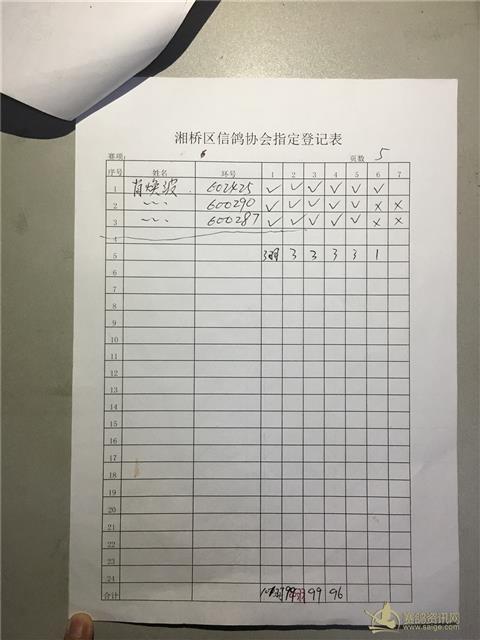 湘桥区信鸽协会指定登记表
赛项: 6 页数 5
序号 姓名 环号 1 2 3 4 5 6 7
1 肖焕波 602425 ✓ ✓ ✓ ✓ ✓ ✓
2 〃 600290 ✓ ✓ ✓ ✓ ✓ × ×
3 〃 600287 ✓ ✓ ✓ ✓ ✓ × ×
4
5 3羽 3 3 3 3 1
6
7
8
9
10
11
12
13
14
15
16
17
18
19
20
21
22
23
24
合计 99 96
赛鸽资讯网
www.saige.com